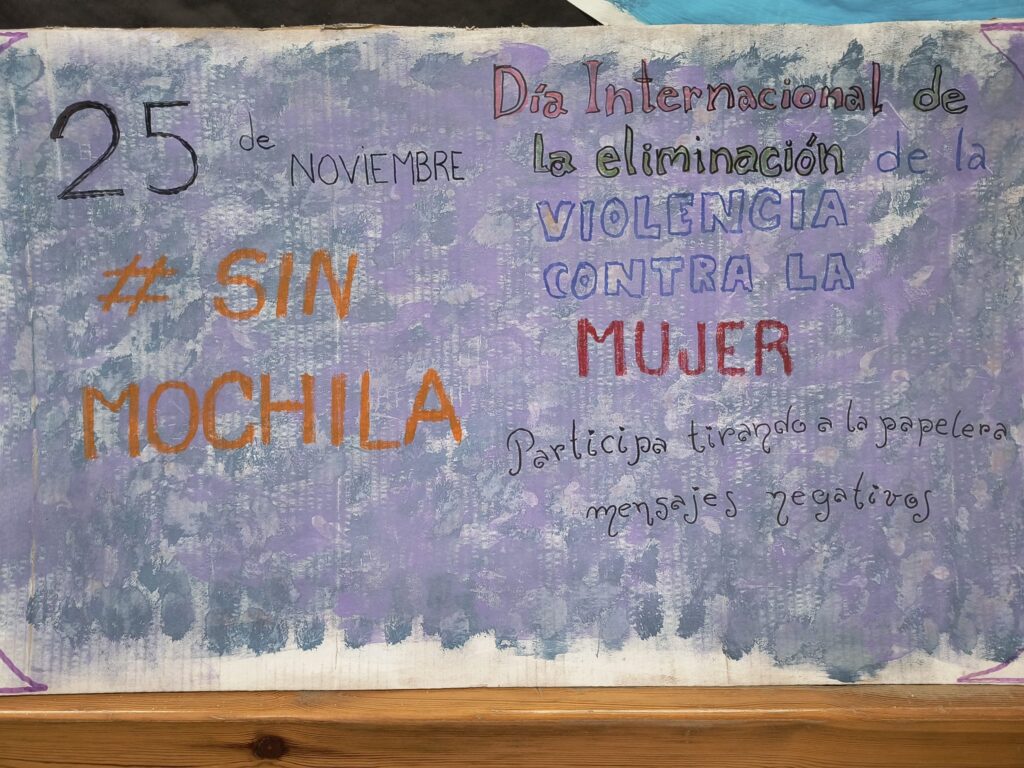 25 de NOVIEMBRE
# SIN
MOCHILA
Día Internacional de
la eliminación de la
VIOLENCIA
CONTRA LA
MUJER
Participa tirando a la papelera
mensajes negativos